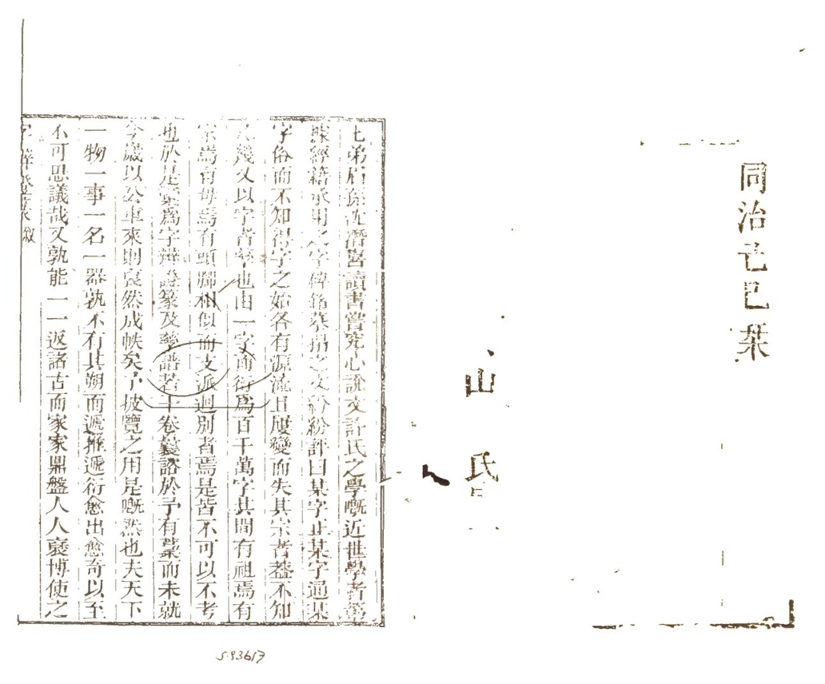 同治己巳栞
山
氏
七弟眉孫沈潛喜讀書嘗究心說文許氏之學嘅近世學者第
據經籍承用之字碑銘摹搨之文紛紛評曰某字正某字通某
字俗而不知得字之始各有源流且屢變而失其宗者葢不知
凡幾又以字者孳也由一字而衍爲百千萬字其間有祖焉有
宗焉有母焉有頭腳相似而支派迥別者焉是皆不可以不考
也於是彙爲字辨證篆及孳譜若干卷曩諗於予有藁而未就
今歲以公車來則裒然成帙矣予披覽之用是嘅然也夫天下
一物一事一名一器孰不有其朔而遞推遞衍愈出愈奇以至
不可思議哉又孰能一一返諸古而家家鼎盤人人裒博使之
字辨證篆敘
S.93617